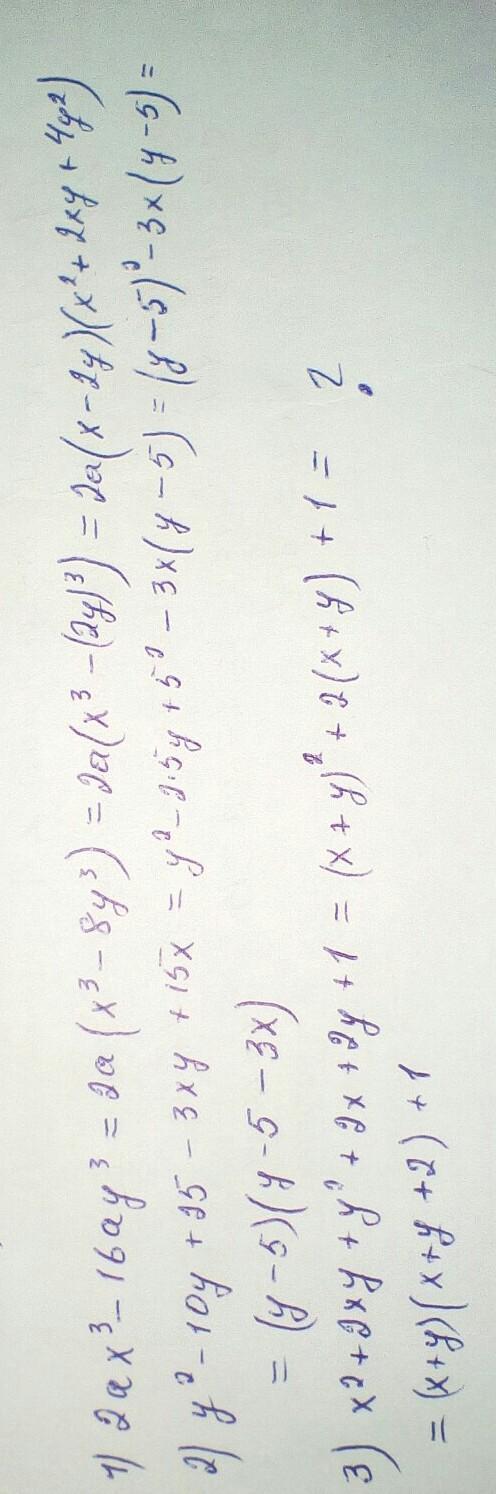 1) 2ax³ - 16ay³ = 2a(x³ - 8y³) = 2a(x³ - (2y)³) = 2a(x - 2y)(x² + 2xy + 4y²)
2) y² - 10y + 25 - 3xy + 15x = y² - 2·5y + 5² - 3x(y - 5) = (y - 5)² - 3x(y - 5) =
= (y - 5)(y - 5 - 3x)
3) x² + 2xy + y² + 2x + 2y + 1 = (x + y)² + 2(x + y) + 1 = ?
= (x+y)(x+y+2)+1